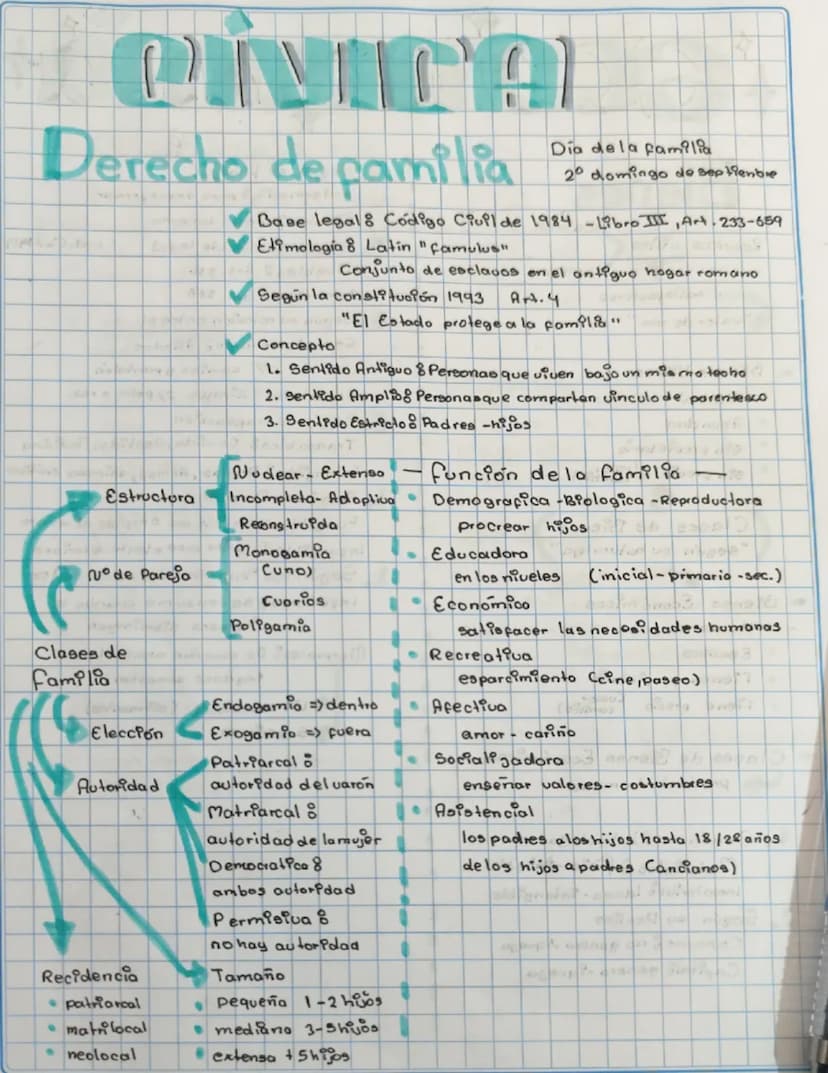 CÍVICA
Derecho de familia
Día de la familia
2º domingo de septienbre
Base legal: Código Civil de 1984 - Libro III, Art. 233-659
Etimología: Latin "famulus"
Conjunto de esclavos en el antiguo hogar romano
Según la constitución 1993 Art. 4
"El Estado protege a la familia"
Concepto
1. Sentido Antiguo: Personas que viven bajo un mismo techo
2. Sentido Amplio: Personas que compartan vinculo de parentesco
3. Sentido Estricto: Padres - hijos
Clases de
familia
Estructora
Nuclear - Extenso
Incompleta - Adoptiva
Reconstruida
Nº de Pareja
Monogamia
(uno)
Cuarios
Poligamia
Elección
Endogamia => dentro
Exogamia => fuera
Autoridad
Patriarcal:
autoridad del varón
Matriarcal:
autoridad de la mujer
Democratica:
ambos autoridad
Permisiva:
no hay autoridad
Recidencia
• patriarcal
• matrilocal
• neolocal
Tamaño
• pequeña 1-2 hijos
• mediano 3-5 hijos
• extensa +5 hijos
— Función de la familia —
• Demografica - Biologica - Reproductora
procrear hijos
• Educadora
en los niveles (inicial - primario - sec.)
• Económico
satisfacer las necesidades humanas
• Recreativa
esparcimiento (cine, paseo)
• Afectiva
amor - cariño
• Socializadora
enseñar valores - costumbres
• Asistencial
los padres a los hijos hasta 18/28 años
de los hijos a padres (ancianos)